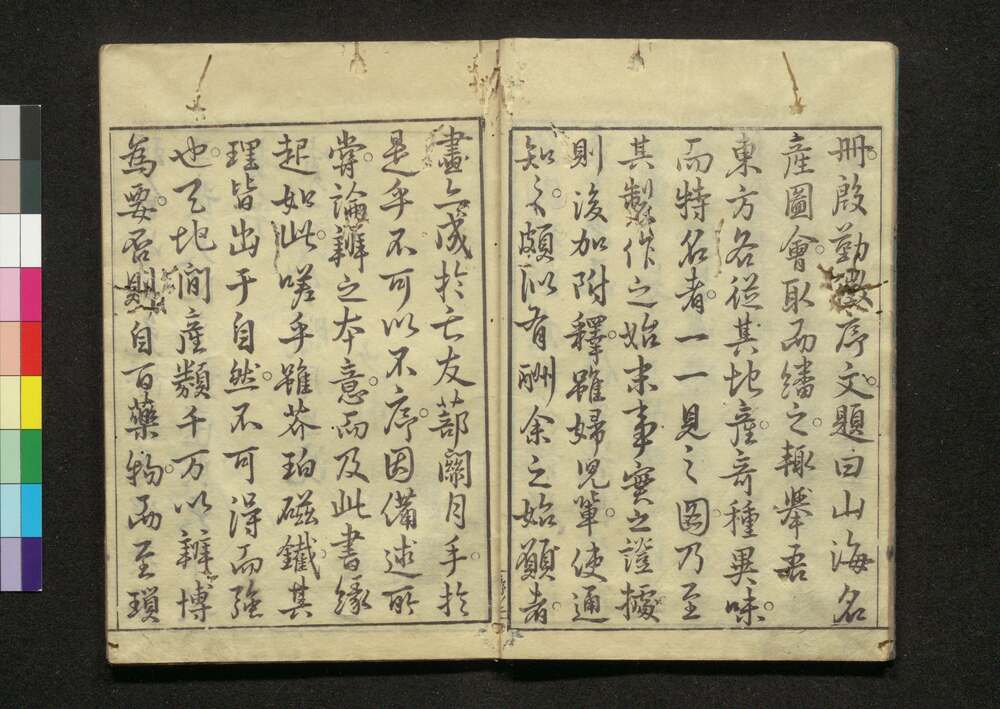 冊殷勤徴序文題曰山海名
産圖會取而繙之輙舉吾
東方各従其地産竒種異味
而特名者一一見之圖乃至
其製作之始末事實之證據
則後加附釋雖婦児輩使通
知之頗似有酬余之始願者
畫亦成於亡友蔀關月手於
是乎不可以不序因備述所
嘗論辨之本意而及此書縁
起如此嗟乎雖芥珀磁鐵其
理皆出于自然不可得而強
也天地間産類千万以辨博
為要否則自百藥物而至瑣